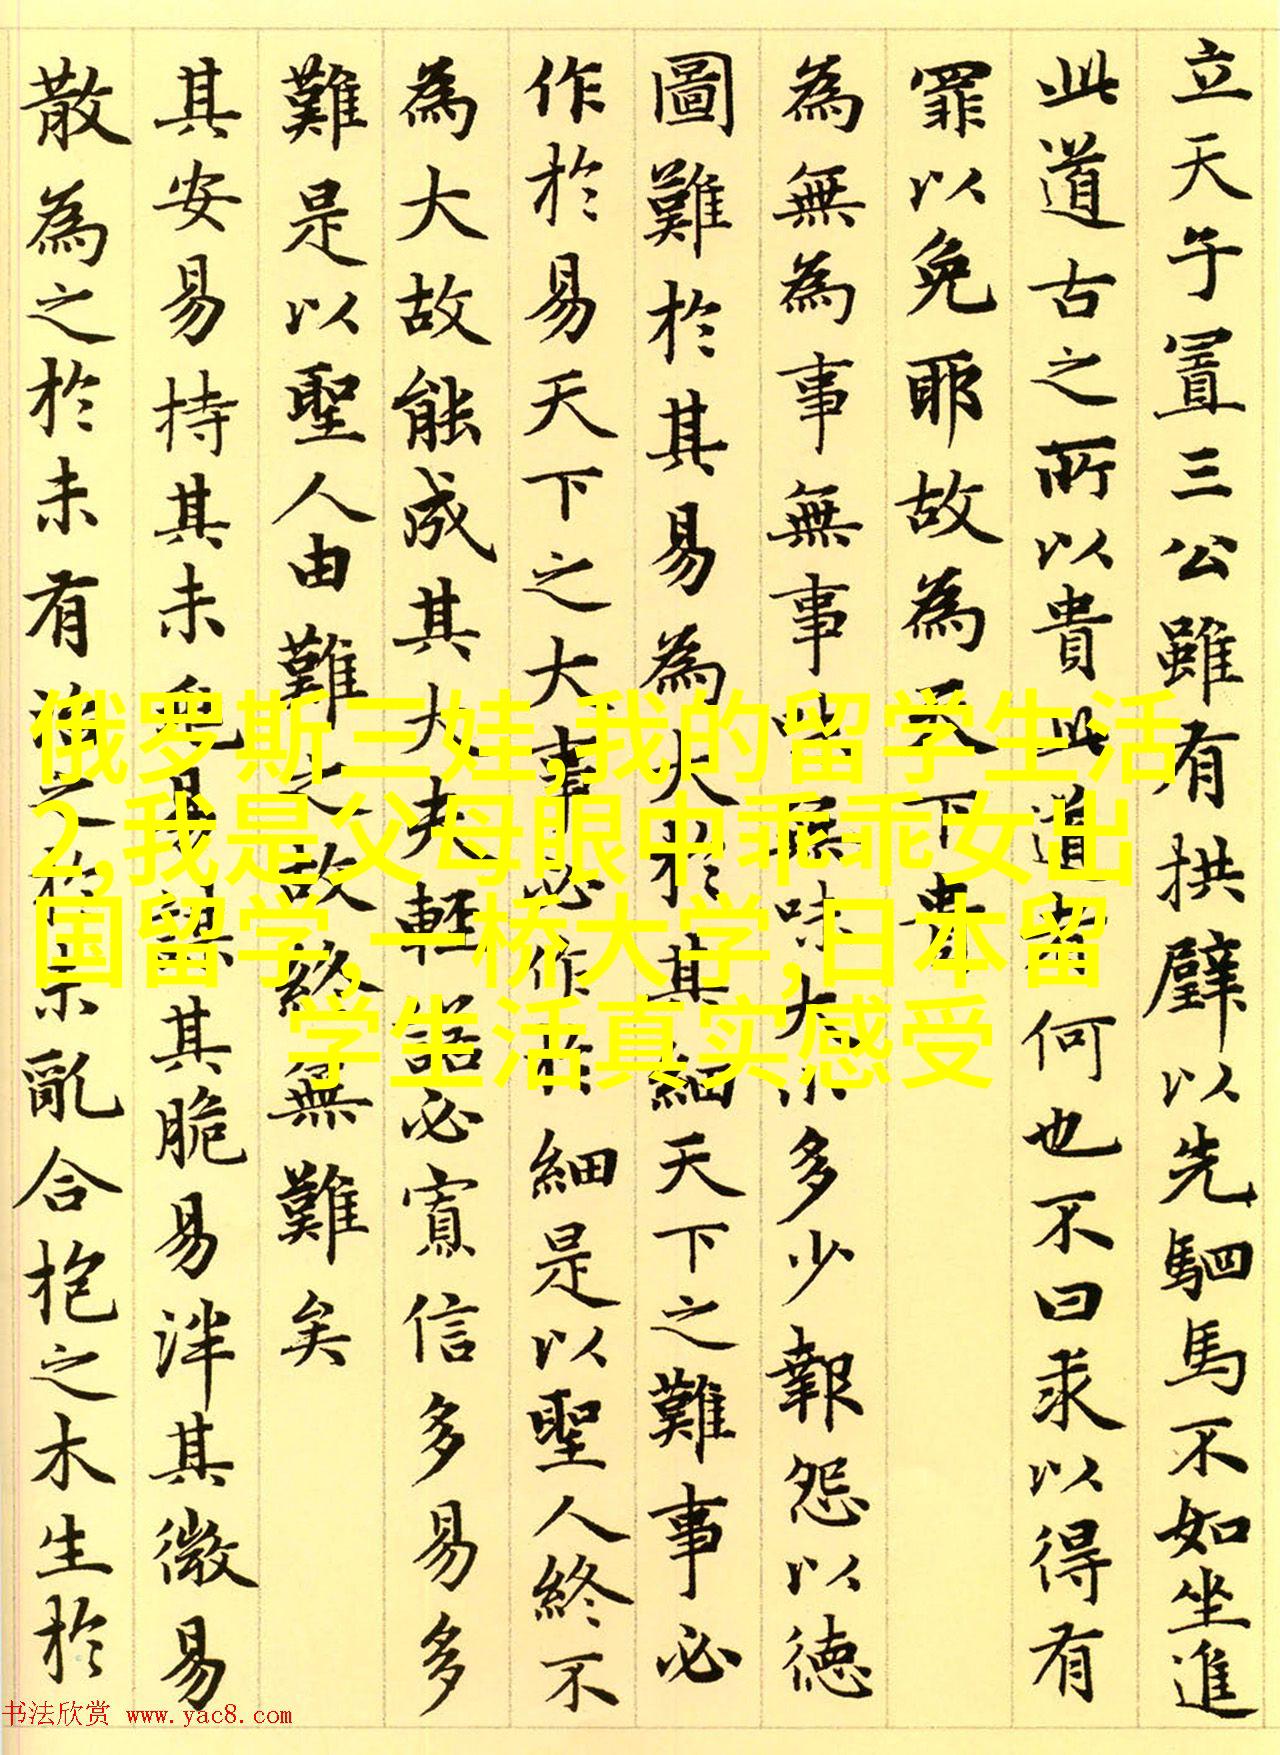 立天子置三公雖有拱璧以先駟馬不如坐進
此道古之所以貴此道者何也不曰求以得有
罪以免耶故為天下貴
為無為事無事味無味大小多少報怨以德
圖難於其易為大於其細天下之難事必
作於易天下之大事必作於細是以聖人終不
為大故能成其大夫輕諾必寡信多易多
難是以聖人由難之故終無難矣
其安易持其未兆易謀其脆易泮其微易
散為之於未有治之於未亂合抱之木生於
俄罗斯三娃,我的留学生活
2,我是父母眼中乖乖女出
国留学,一桥大学,日本留
学生活真实感受
书法欣赏 www.yac8.com